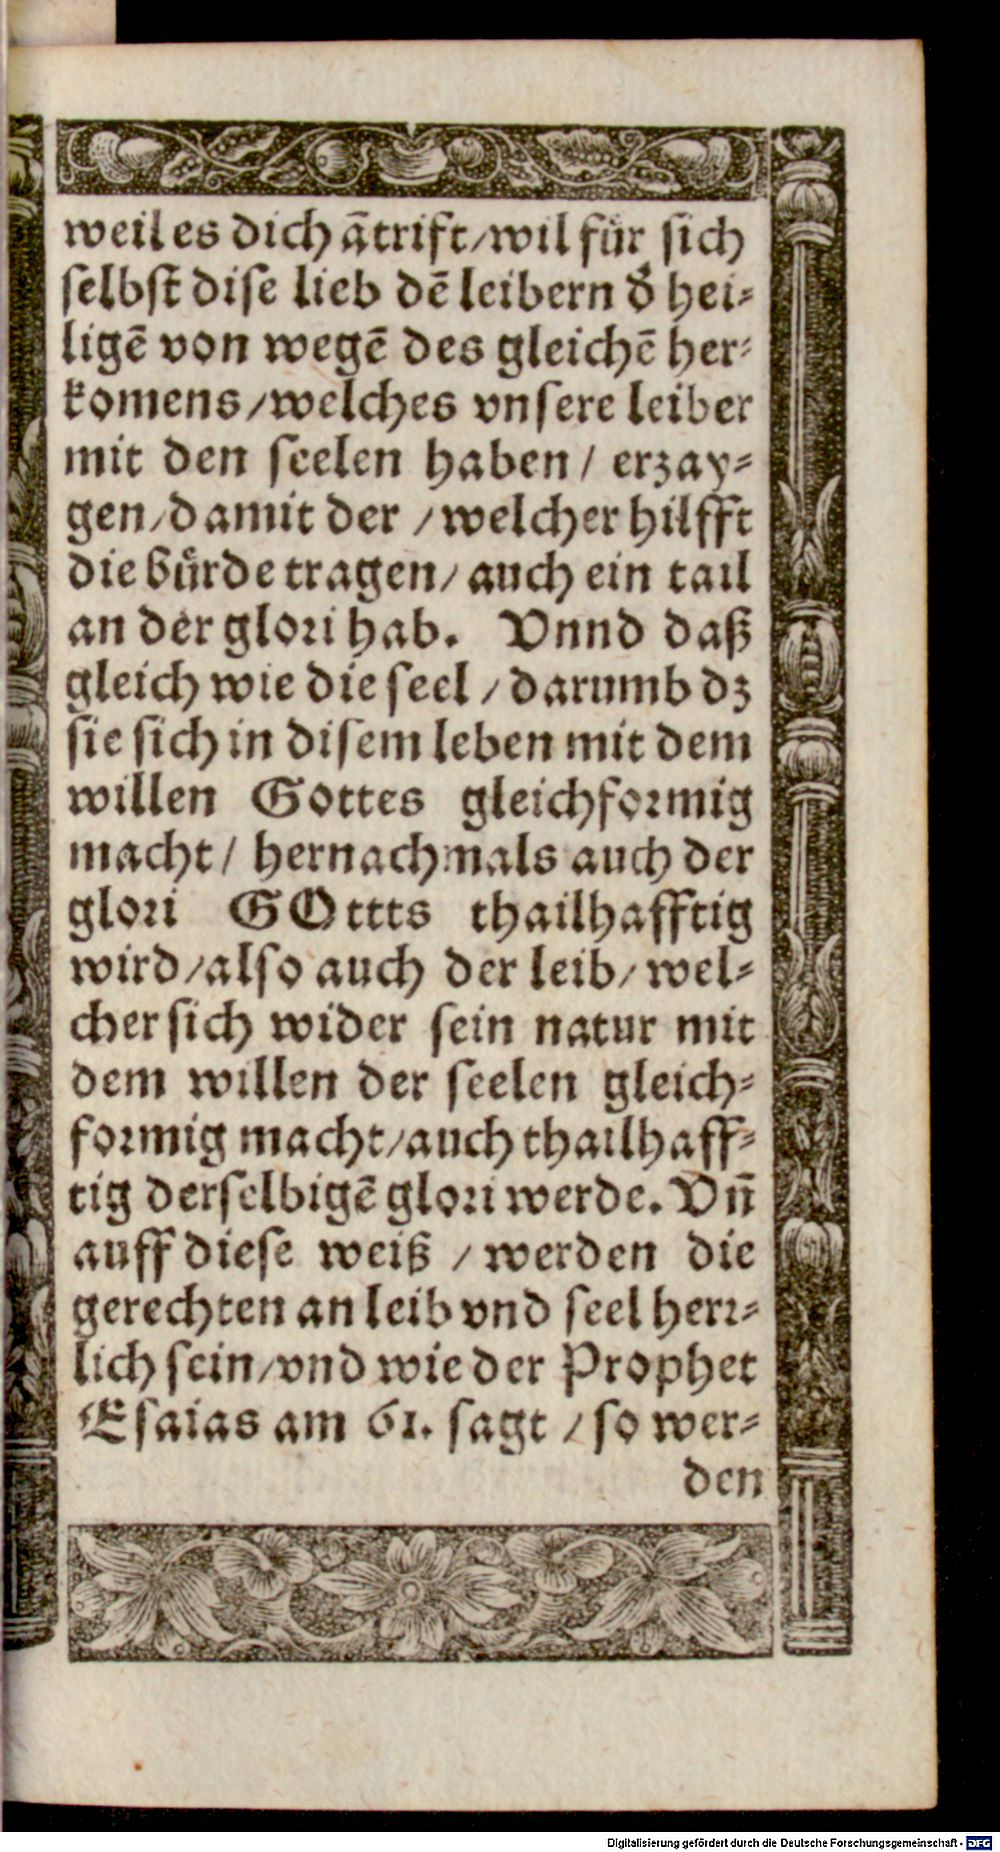 weil es dich ātrift/wil für sich
selbst dise lieb dē leibern d̕ hei⸗
ligē von wegē des gleichē her⸗
komens/welches vnsere leiber
mit den seelen haben/ erzay⸗
gen/damit der /welcher hilfft
die bürde tragen/ auch ein tail
an der glori hab. Vnnd daß
gleich wie die seel /darumb dz
sie sich in disem leben mit dem
willen Gottes gleichformig
macht/ hernachmals auch der
glori GOttts thailhafftig
wird/also auch der leib/ wel⸗
cher sich wider sein natur mit
dem willen der seelen gleich⸗
formig macht/auch thailhaff⸗
tig derselbigē glori werde. Vn̄
auff diese weiß /werden die
gerechten an leib vnd seel herr⸗
lich sein/vnd wie der Prophet
Esaias am 61. sagt /so wer⸗
den
Digitalisierung gefördert durch die Deutsche Forschungsgemeinschaft - DFG